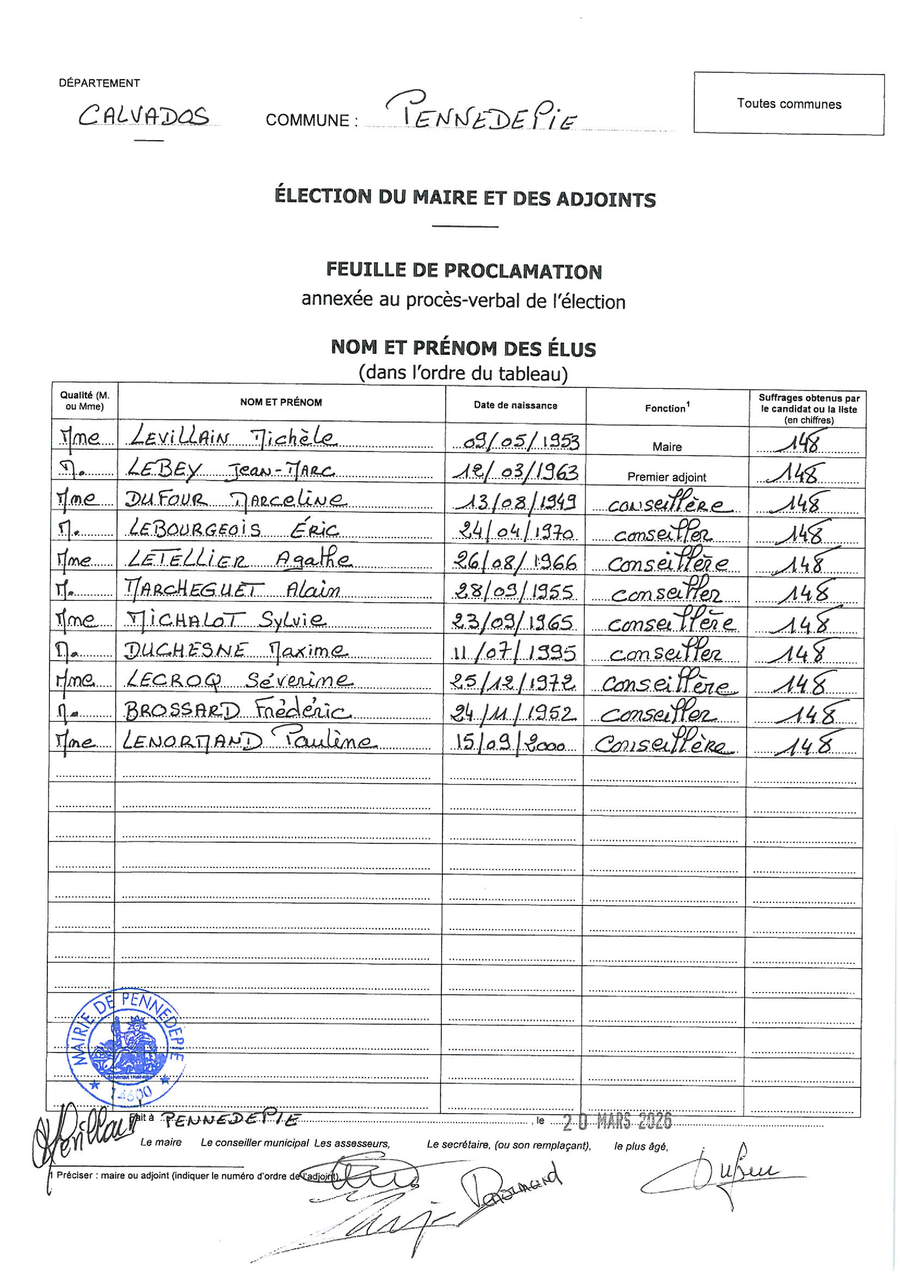 DÉPARTEMENT
CALVADOS
COMMUNE : PENNEDEPIE
Toutes communes
ÉLECTION DU MAIRE ET DES ADJOINTS
FEUILLE DE PROCLAMATION
annexée au procès-verbal de l'élection
NOM ET PRÉNOM DES ÉLUS
(dans l'ordre du tableau)
Qualité (M. ou Mme) NOM ET PRÉNOM Date de naissance Fonction1 Suffrages obtenus par le candidat ou la liste (en chiffres)
Mme LEVILLAIN Michèle 09/05/1953 Maire 148
M. LEBEY Jean-Marc 12/03/1963 Premier adjoint 148
Mme DUFOUR Marceline 13/08/1949 conseillère 148
M. LEBOURGEOIS Éric 24/04/1970 conseiller 148
Mme LETELLIER Agathe 26/08/1966 conseillère 148
M. MARCHEGUET Alain 28/09/1955 conseiller 148
Mme MICHALOT Sylvie 23/09/1965 conseillère 148
M. DUCHESNE Maxime 11/07/1995 conseiller 148
Mme LECROQ Séverine 25/12/1972 conseillère 148
M. BROSSARD Frédéric 24/11/1952 conseiller 148
Mme LENORMAND Pauline 15/09/2000 Conseillère 148
MAIRIE DE PENNEDEPIE
14600
Fait à PENNEDEPIE, le 20 MARS 2026
Le maire Le conseiller municipal Les assesseurs, Le secrétaire, (ou son remplaçant), le plus âgé,
1 Préciser : maire ou adjoint (indiquer le numéro d'ordre de l'adjoint).